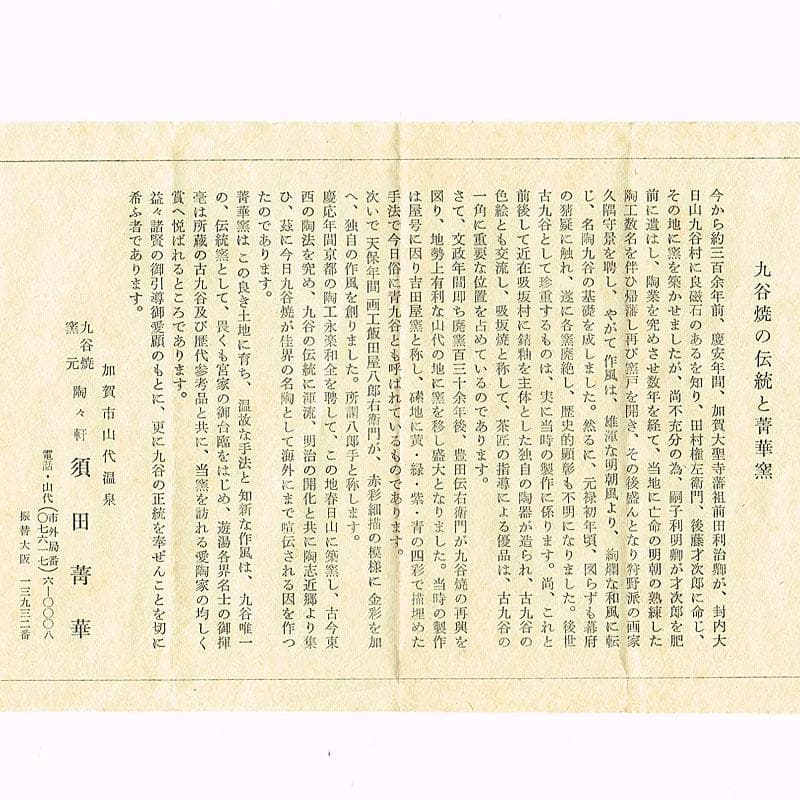 九谷焼の伝統と菁華窯
今から約三百余年前、慶安年間、加賀大聖寺藩祖前田利治卿が、封内大
日山九谷村に良磁石のあるを知り、田村権左衛門、後藤才次郎に命じ、
その地に窯を築かせましたが、尚不充分の為、嗣子利明卿が才次郎を肥
前に遣はし、陶業を究めさせ数年を経て、当地に亡命の明朝の熟練した
陶工数名を伴ひ帰藩し再び窯戸を開き、その後盛んとなり狩野派の画家
久隅守景を聘し、やがて作風は、雄渾な明朝風より、絢爛な和風に転
じ、名陶九谷の基礎を成しました。然るに、元禄初年頃、図らずも幕府
の猜疑に触れ、遂に各窯廃絶し、歴史的顕彰も不明になりました。後世
古九谷として珍重するものは、実に当時の製作に係ります。尚、これと
前後して近在吸坂村に錆釉を主体とした独自の陶器が造られ、古九谷の
色絵とも交流し、吸坂焼と称して、茶匠の指導による優品は、古九谷の
一角に重要な位置を占めているのであります。
さて、文政年間即ち廃窯百三十余年後、豊田伝右衛門が九谷焼の再興を
図り、地勢上有利な山代の地に窯を移し盛大となりました。当時の製作
は屋号に因り吉田屋窯と称し、磁地に黄・緑・紫・青の四彩で描埋めた
手法で今日俗に青九谷とも呼ばれているものであります。
次いで天保年間画工飯田屋八郎右衛門が、赤彩細描の模様に金彩を加
へ、独自の作風を創りました。所謂八郎手と称します。
慶応年間京都の陶工永楽和全を聘して、この地春日山に築窯し、古今東
西の陶法を究め、九谷の伝統に渾流、明治の開化と共に陶志近郷より集
ひ、茲に今日九谷焼が佳界の名陶として海外にまで喧伝される因を作っ
たのであります。
菁華窯はこの良き土地に育ち、温故な手法と知新な作風は、九谷唯一
の、伝統窯として、畏くも宮家の御台臨をはじめ、遊湯各界名士の御揮
毫は所蔵の古九谷及び歴代参考品と共に、当窯を訪れる愛陶家の均しく
賞へ悦ばれるところであります。
益々諸賢の御引導御愛顧のもとに、更に九谷の正統を奉ぜんことを切に
希ふ者であります。
加賀市山代温泉
九谷焼窯元 陶々軒 須田菁華
電話・山代(市外局番〇七六一七)六―〇〇〇八
振替大阪 一三九三二番